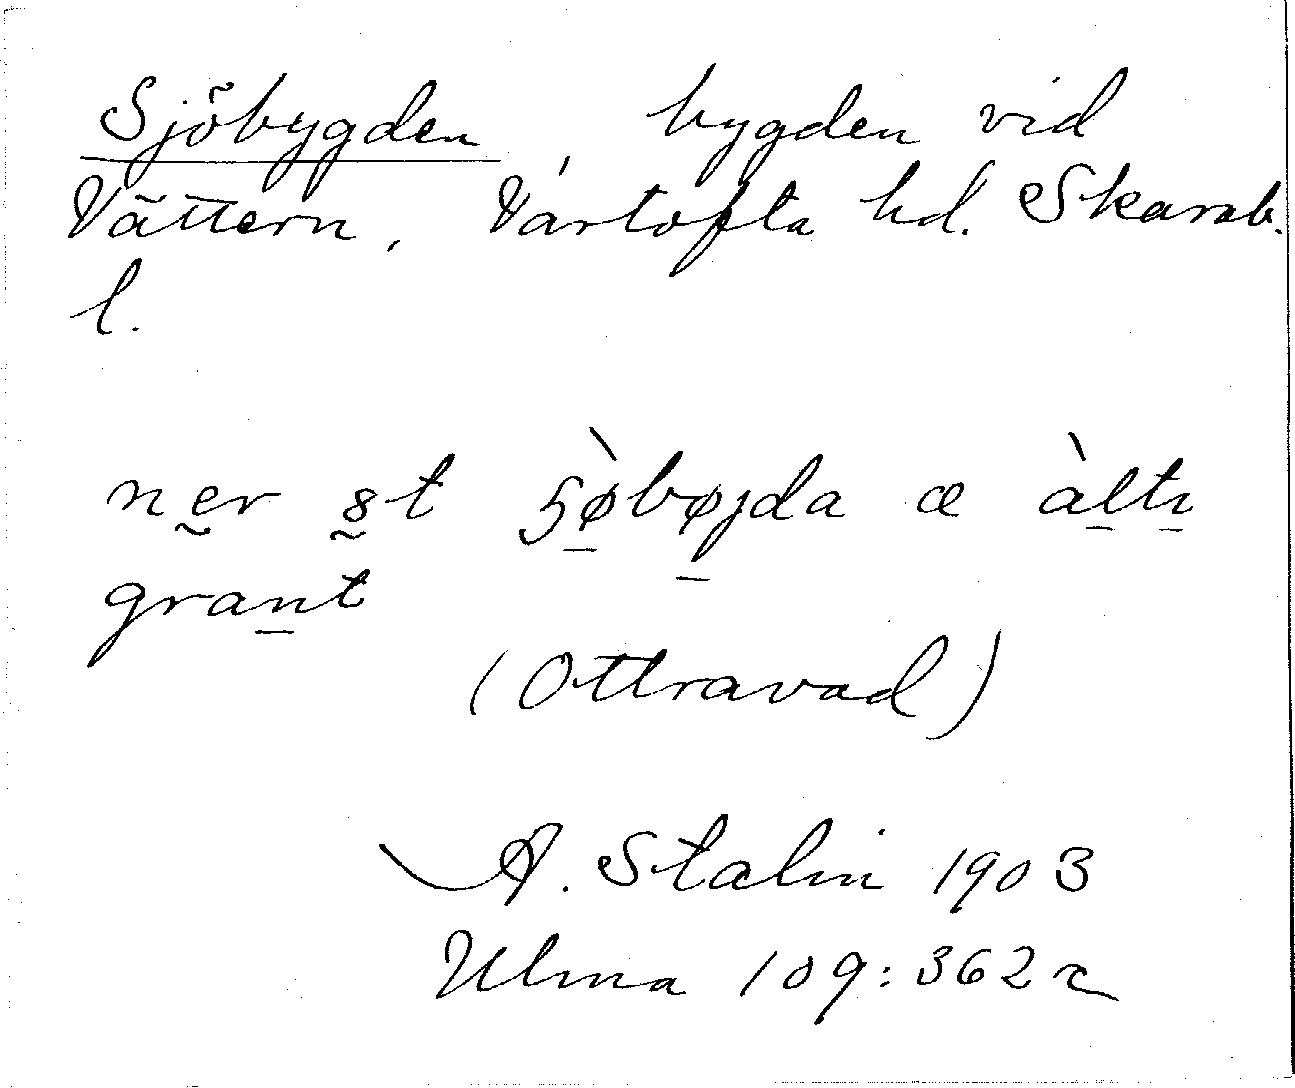 Sjöbygden, bygden vid
Vättern, Vartofta hd. Skarab.
l.
ne̱r st 5ø̱bø̱jda æ àḻtı̱
graṉt
(Ottravad)
A. Stalin 1903
Ulma 109:362